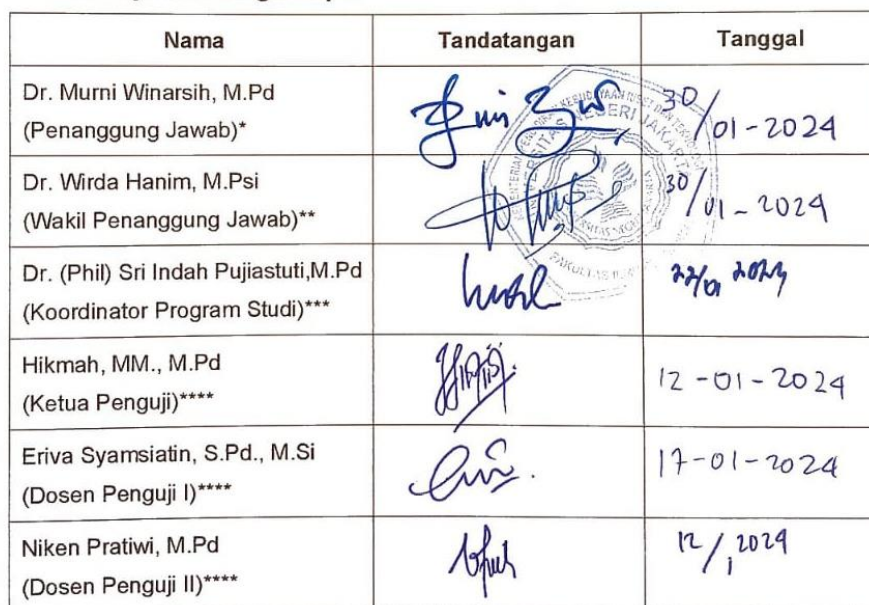 Nama Tandatangan Tanggal
Dr. Murni Winarsih, M.Pd
(Penanggung Jawab)* 30/01-2024
Dr. Wirda Hanim, M.Psi
(Wakil Penanggung Jawab)** 30/01-2024
Dr. (Phil) Sri Indah Pujiastuti,M.Pd
(Koordinator Program Studi)*** 22/01
Hikmah, MM., M.Pd
(Ketua Penguji)**** 12-01-2024
Eriva Syamsiatin, S.Pd., M.Si
(Dosen Penguji I)**** 17-01-2024
Niken Pratiwi, M.Pd
(Dosen Penguji II)**** 12/1
NEGERI JAKARTA
FAKULTAS